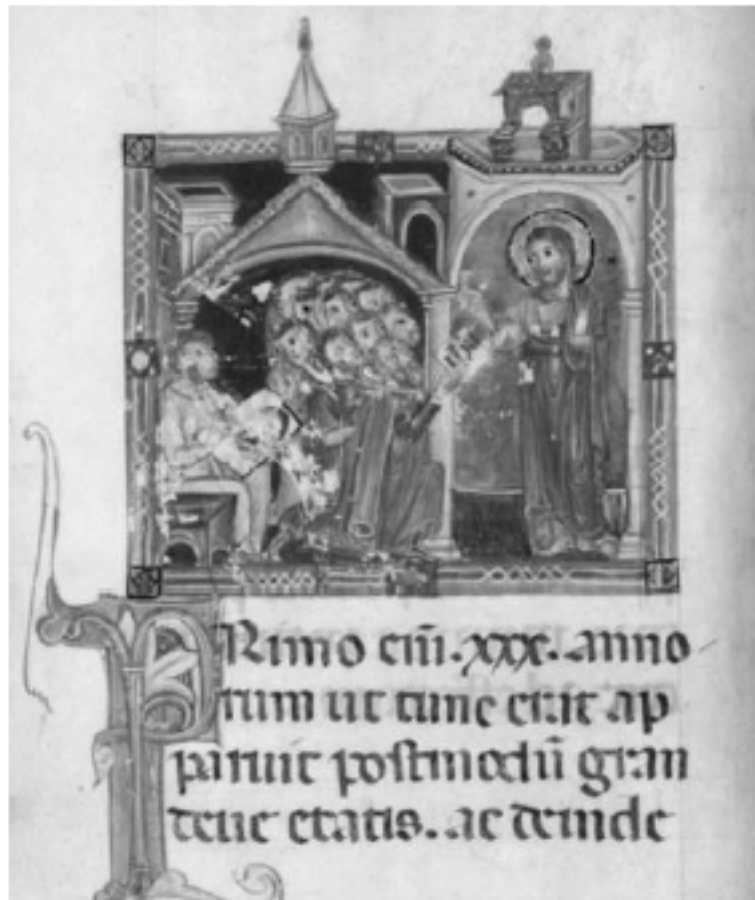 PRimo eni͂.xxx.anno
rum ut tunc erat ap
paruit postmodu͂ gran
deue etatis. ac deinde